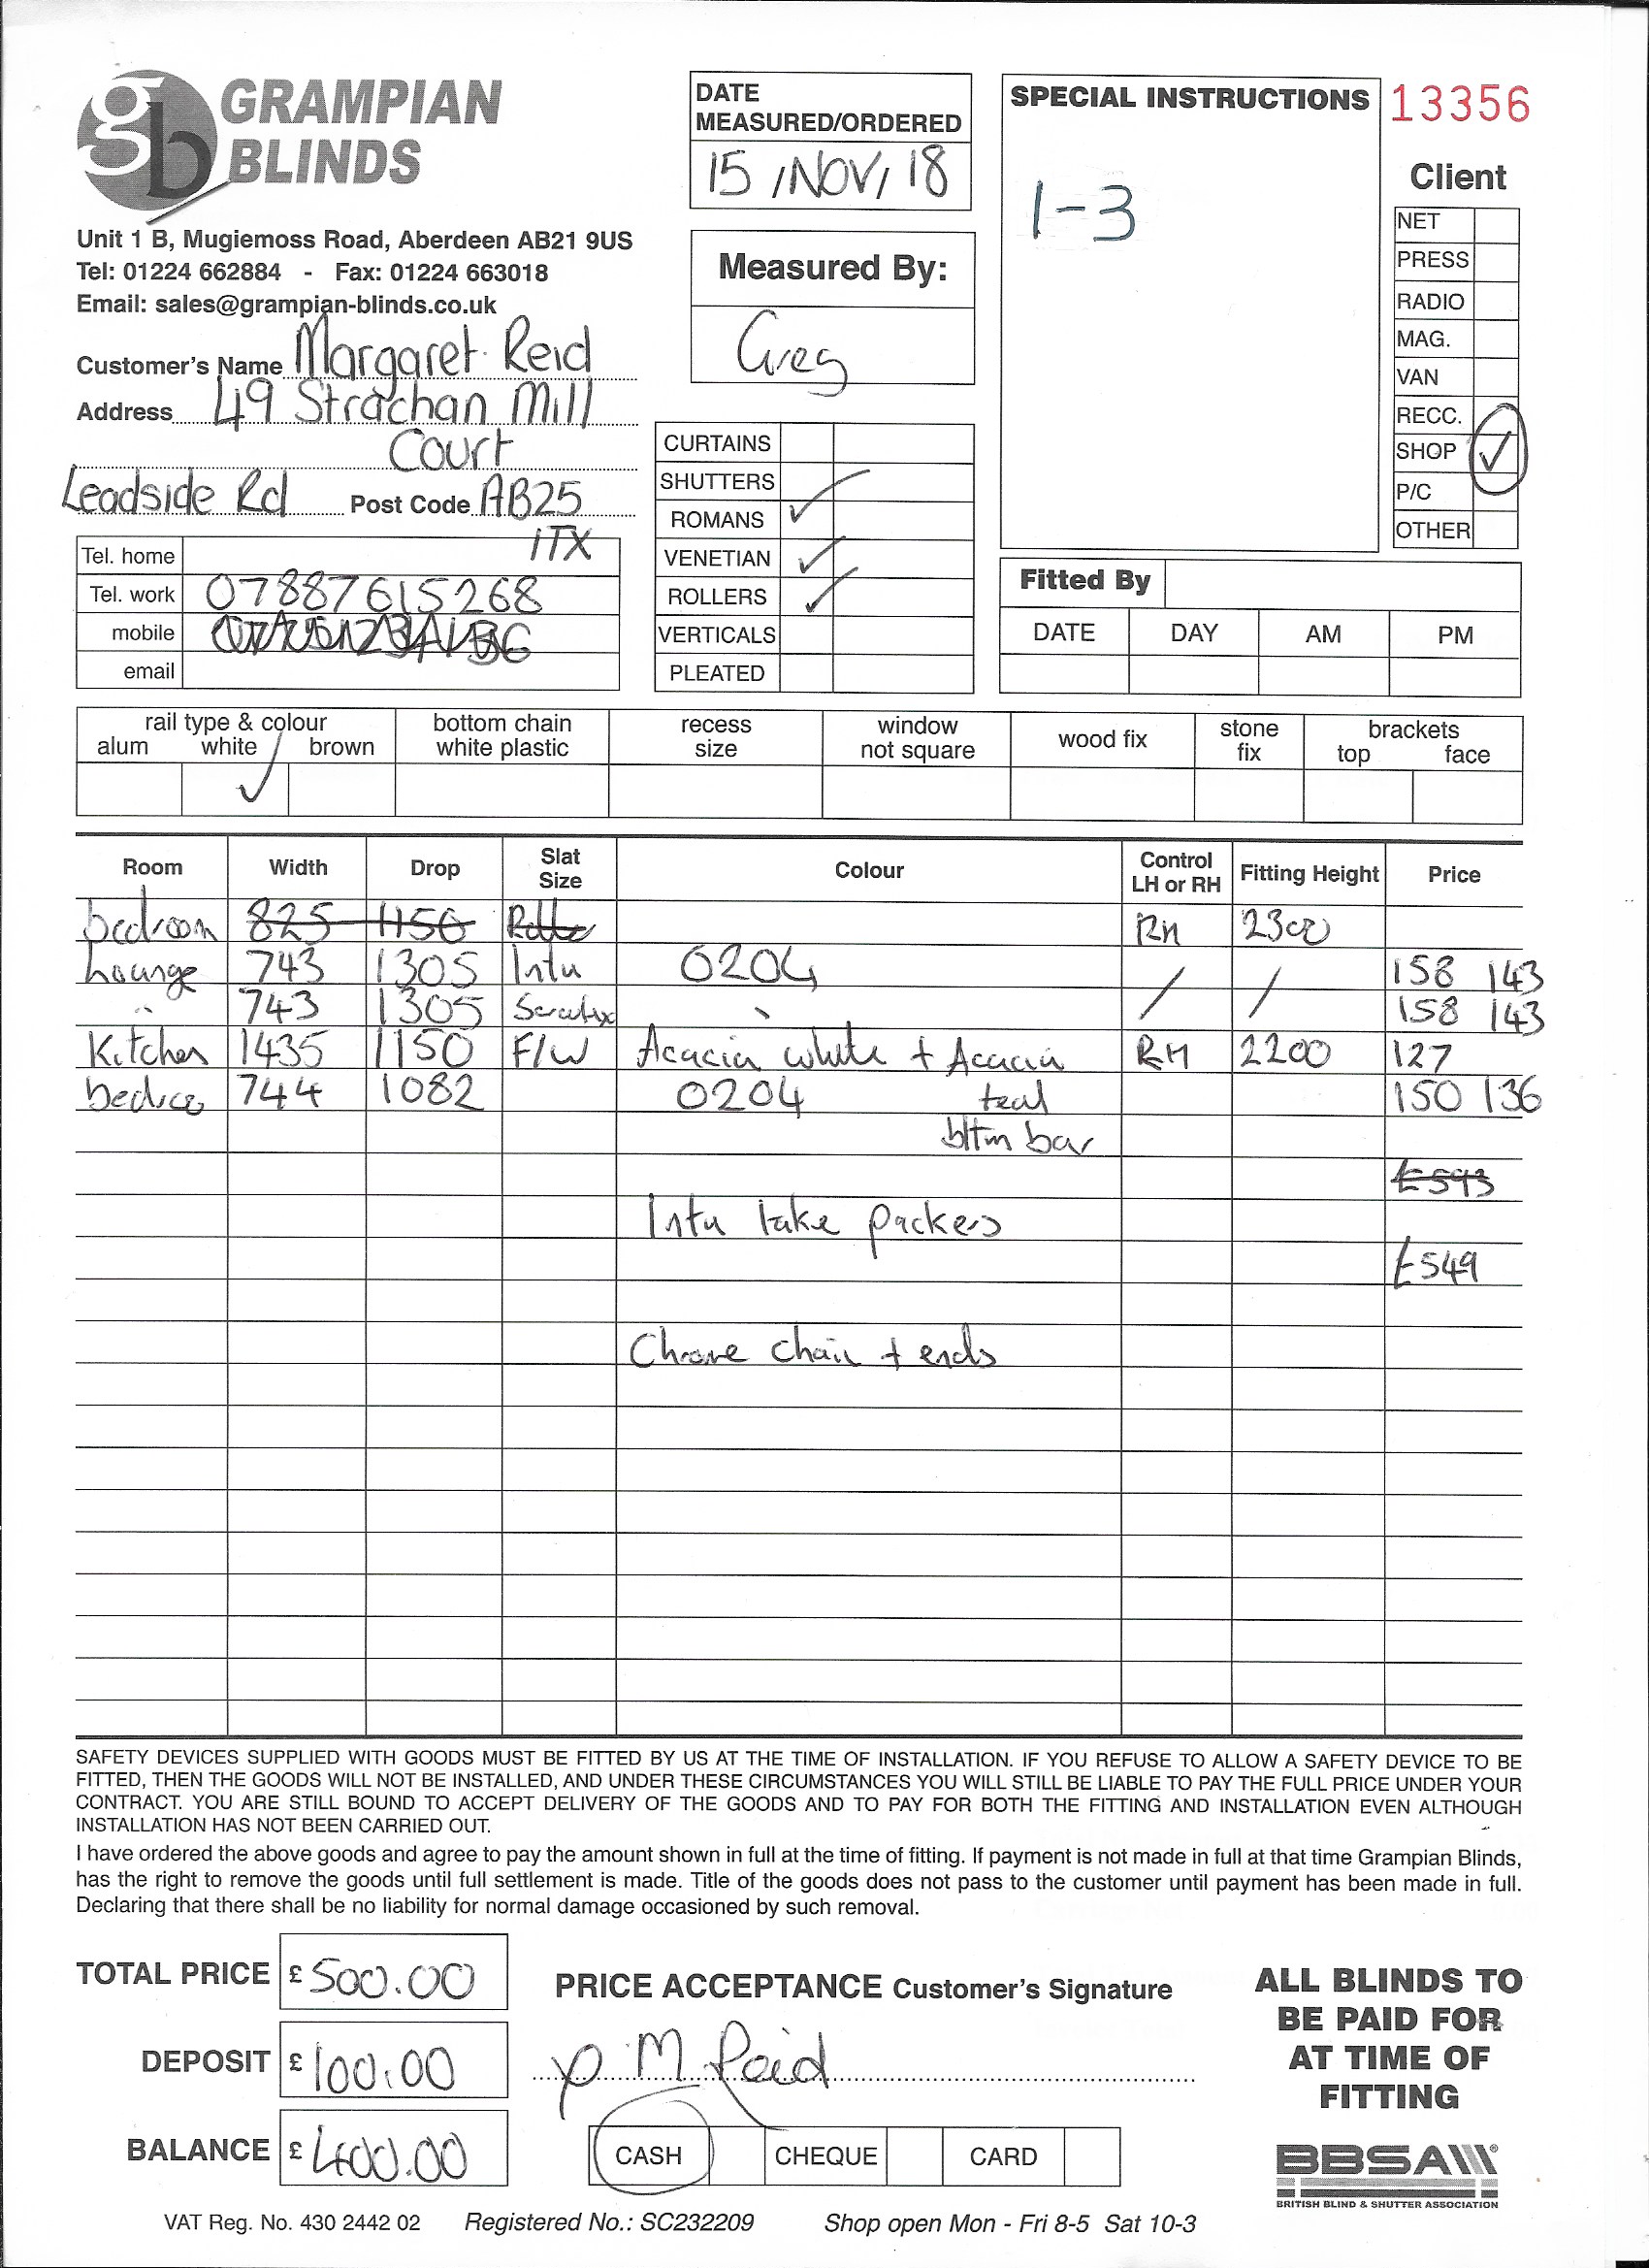 gb GRAMPIAN BLINDS
Unit 1 B, Mugiemoss Road, Aberdeen AB21 9US
Tel: 01224 662884 - Fax: 01224 663018
Email: sales@grampian-blinds.co.uk
Customer's Name Margaret Reid
Address 49 Strachan Mill
Court
Leadside Rd Post Code AB25
1TX
Tel. home
Tel. work 07887615268
mobile
email
DATE
MEASURED/ORDERED
15 / NOV / 18
Measured By:
Greg
CURTAINS
SHUTTERS
ROMANS ✓
VENETIAN ✓
ROLLERS ✓
VERTICALS
PLEATED
SPECIAL INSTRUCTIONS
1-3
13356
Client
NET
PRESS
RADIO
MAG.
VAN
RECC.
SHOP ✓
P/C
OTHER
Fitted By
DATE DAY AM PM
rail type & colour bottom chain recess window wood fix stone brackets
alum white brown white plastic size not square fix top face
✓
Room Width Drop Slat Size Colour Control LH or RH Fitting Height Price
bedroom 825 1150 RH 2300
Lounge 743 1305 Intu 0204 / / 158 143
" 743 1305 / / 158 143
Kitchen 1435 1150 F/W Acacia white + Acacia RH 2200 127
744 1082 0204 teal 150 136
bttm bar
£593
Intu take packers
£549
Chrome chain + ends
SAFETY DEVICES SUPPLIED WITH GOODS MUST BE FITTED BY US AT THE TIME OF INSTALLATION. IF YOU REFUSE TO ALLOW A SAFETY DEVICE TO BE
FITTED, THEN THE GOODS WILL NOT BE INSTALLED, AND UNDER THESE CIRCUMSTANCES YOU WILL STILL BE LIABLE TO PAY THE FULL PRICE UNDER YOUR
CONTRACT. YOU ARE STILL BOUND TO ACCEPT DELIVERY OF THE GOODS AND TO PAY FOR BOTH THE FITTING AND INSTALLATION EVEN ALTHOUGH
INSTALLATION HAS NOT BEEN CARRIED OUT.
I have ordered the above goods and agree to pay the amount shown in full at the time of fitting. If payment is not made in full at that time Grampian Blinds,
has the right to remove the goods until full settlement is made. Title of the goods does not pass to the customer until payment has been made in full.
Declaring that there shall be no liability for normal damage occasioned by such removal.
TOTAL PRICE £ 500.00
DEPOSIT £ 100.00
BALANCE £ 400.00
PRICE ACCEPTANCE Customer's Signature
p M Reid
CASH CHEQUE CARD
ALL BLINDS TO
BE PAID FOR
AT TIME OF
FITTING
BBSA
BRITISH BLIND & SHUTTER ASSOCIATION
VAT Reg. No. 430 2442 02 Registered No.: SC232209 Shop open Mon - Fri 8-5 Sat 10-3